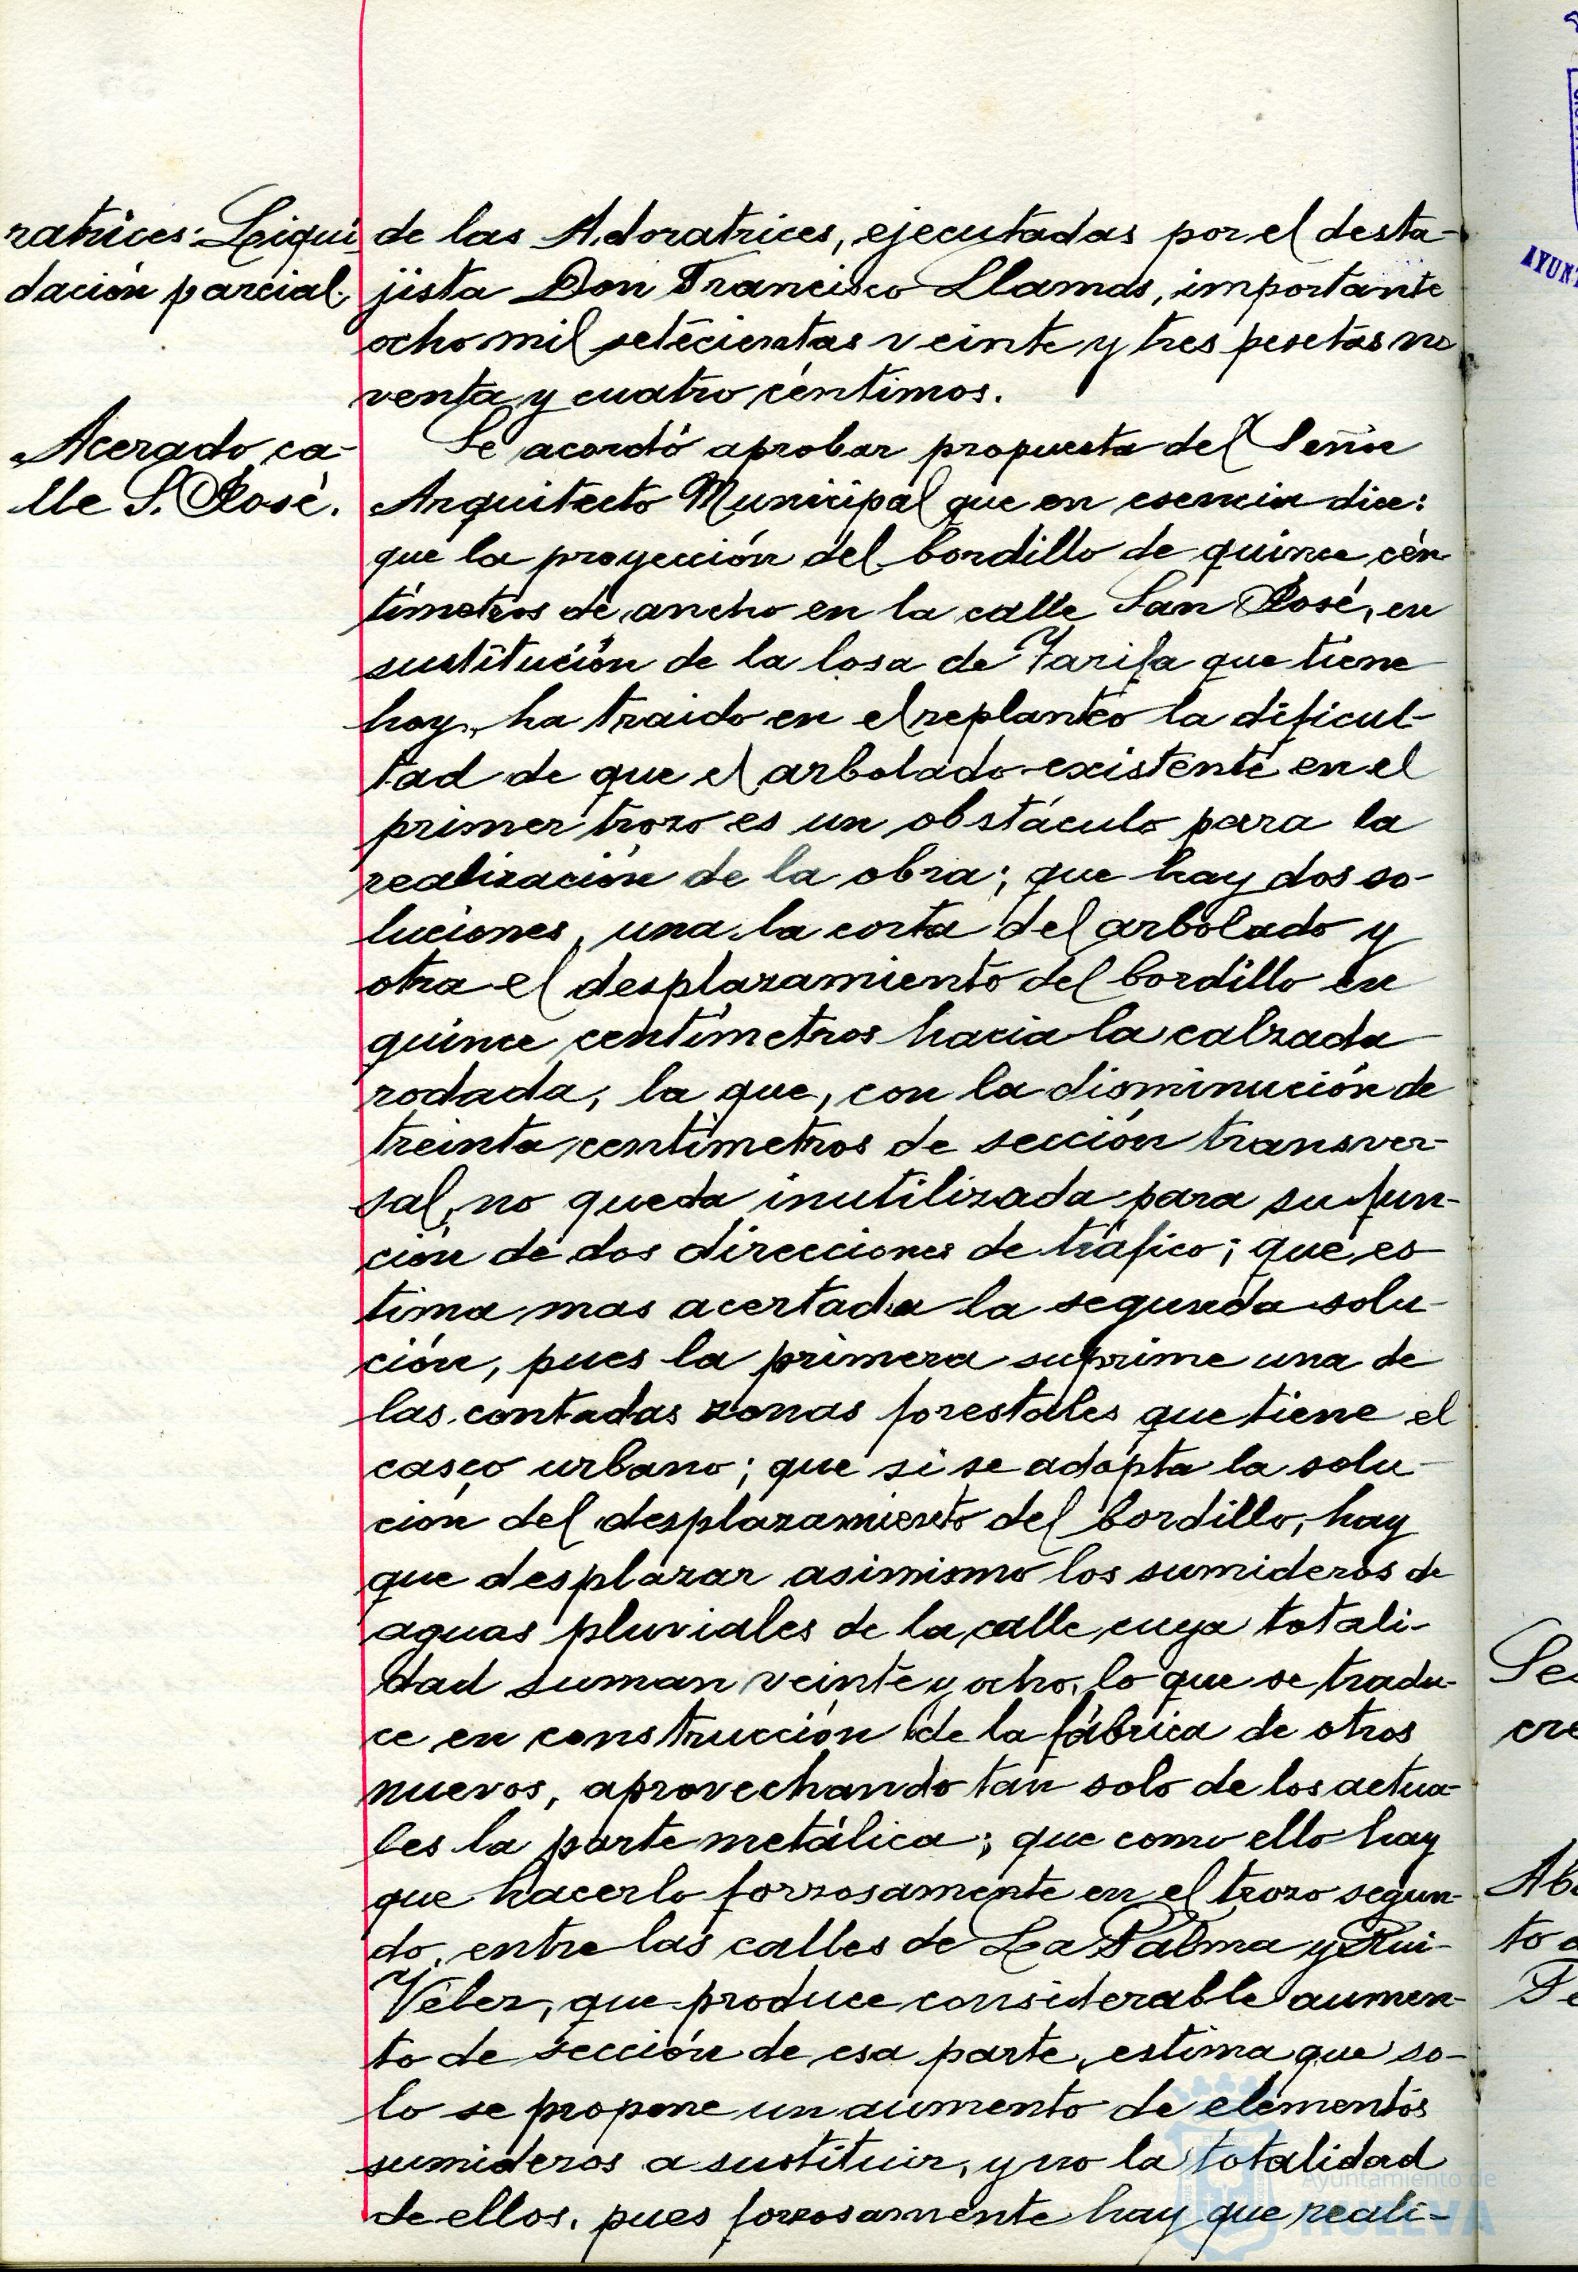 ratrices: Liqui
dación parcial.
de las Adoratrices, ejecutadas por el desta-
jista Don Francisco Llamas, importante
ocho mil setecientas veinte y tres pesetas no
venta y cuatro céntimos.
Acerado ca-
lle S. José.
Se acordó aprobar propuesta del Señor
Arquitecto Municipal que en esencia dice:
que la proyección del bordillo de quince cén
tímetros de ancho en la calle San José, en
sustitución de la losa de Tarifa que tiene
hoy, ha traido en el replanteo la dificul-
tad de que el arbolado existente en el
primer trozo es un obstáculo para la
realización de la obra; que hay dos so-
luciones, una la corta del arbolado y
otra el desplazamiento del bordillo en
quince centímetros hacia la calzada
rodada, la que, con la disminución de
treinta centímetros de sección transver-
sal, no queda inutilizada para su fun-
ción de dos direcciones de tráfico; que es
tima mas acertada la segunda solu-
ción, pues la primera suprime una de
las contadas zonas forestales que tiene el
casco urbano; que si se adopta la solu-
ción del desplazamiento del bordillo, hay
que desplazar asimismo los sumideros de
aguas pluviales de la calle cuya totali-
dad suman veinte y ocho, lo que se tradu-
ce en construcción de la fábrica de otros
nuevos, aprovechando tan solo de los actua-
les la parte metálica; que como ello hay
que hacerlo forzosamente en el trozo segun-
do, entre las calles de La Palma y Rui-
Vélez, que produce considerable aumen-
to de sección de esa parte, estima que so-
lo se propone un aumento de elementos
sumideros a sustituir, y no la totalidad
de ellos, pues forzosamente hay que reali-
Ayuntamiento de
HUELVA
AYUNT
Se
cre
Ab
to